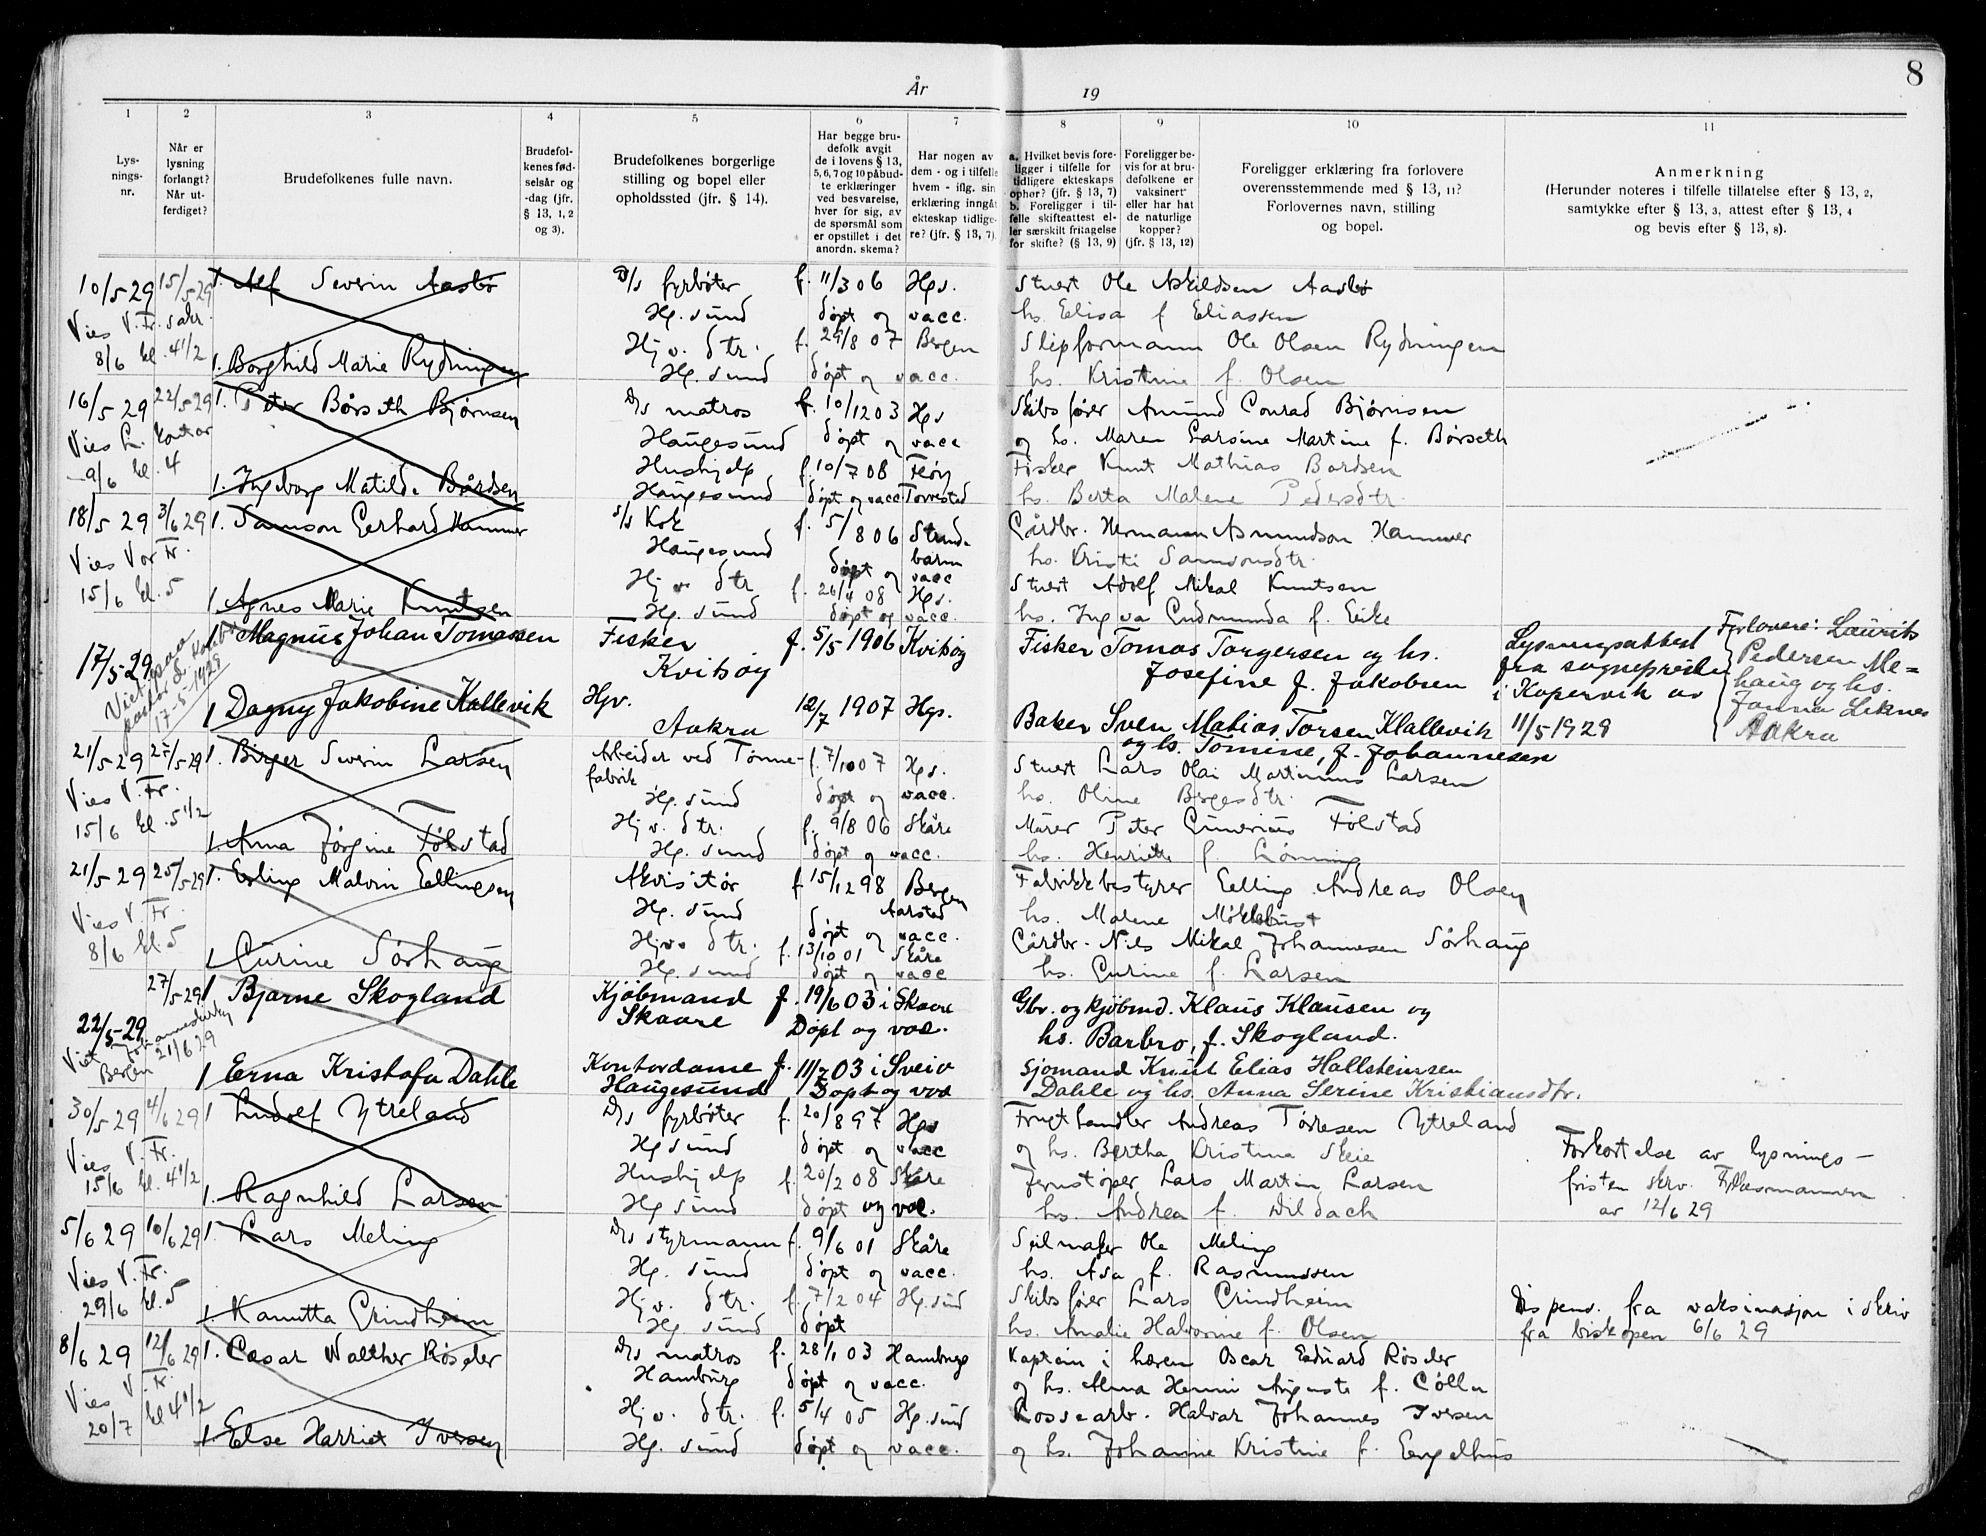 8
År 19
1 2 3 4 5 6 7 8 9 10 11
Lys-
nings-
nr.
Når er
lysning
forlangt?
Når ut-
ferdiget?
Brudefolkenes fulle navn.
Brudefol-
kenes fød-
selsår og
-dag (jfr.
§ 13, 1, 2
og 3).
Brudefolkenes borgerlige
stilling og bopel eller
opholdssted (jfr. § 14).
Har begge bru-
defolk avgit
de i lovens § 13,
5, 6, 7 og 10 påbud-
te erklæringer
ved besvarelse,
hver for sig, av
de spørsmål som
er opstillet i det
anordn. skema?
Har nogen av
dem - og i tilfelle
hvem - iflg. sin
erklæring inngåt
ekteskap tidlige-
re? (jfr. § 13, 7).
a. Hvilket bevis fore-
ligger i tilfelle for
tidligere ekteskaps
ophør? (jfr. § 13, 7)
b. Foreligger i til-
felle skifteattest el-
ler særskilt fritagelse
for skifte? (§ 13, 9)
Foreligger be-
vis for at bru-
defolkene er
vaksinert
eller har hat
de naturlige
kopper?
(jfr. § 13, 12)
Foreligger erklæring fra forlovere
overensstemmende med § 13, 11?
Forlovernes navn, stilling
og bopel.
Anmerkning
(Herunder noteres i tilfelle tillatelse efter § 13, 2,
samtykke efter § 13, 3, attest efter § 13, 4
og bevis efter § 13, 8).
10/5 29 15/5 29 1. Alf Severin Aasbø D/s fyrbøter f. 11/3 06 Hgs. Stuert Ole Askildsen Aasbø
Vies V. Fr. sakr. Hg. sund døpt og vacc. hs. Elisa f Eliassen
8/6 kl. 4 1/2 1. Borghild Marie Rydningen Hj v. dtr. f. 29/8 07 Bergen Skipformann Ole Olsen Rydningen
Hg. sund døpt og vacc. hs. Kristine f. Olsen
16/5 29 22/5 29 1. Peter Børseth Bjørnsen D/s matros f. 10/12 03 Hgs Skibsfører Amund Conrad Bjørnsen
Vies L. kontor Haugesund døpt og vacc og hs. Maren Larsine Martine f. Børseth
9/6 kl. 4 Hushjelp f. 10/7 08 Feøy Fisker Knut Mathias Bårdsen
1. Ingeborg Matilde Bårdsen Haugesund døpt og vacc Torvestad hs. Berta Malene Pedersdtr.
18/5 29 3/6 29 1. Samson Gerhard Hammer S/s Kok f. 5/8 06 Strande- Gårdbr. Hermann Asmundson Hammer
Vies Vor Fr. Haugesund døpt og barm vacc hs. Kristi Samsonsdtr.
15/6 kl. 5 Hj v. dtr f. 26/4 08 Hgs. Stuert Adolf Mikal Knutsen
1 Agnes Marie Knutsen Hg. sund døpt og vacc. hs. Ingva Gudmunda f. Eike
17/5-29 1 Magnus Johan Tomassen Fisker f. 5/5 1906 Kvitsøy Fisker Tomas Torgersen og hs. Lysningsattest Forlovere: Laurits
Kvitsøy Josefine f. Jakobsen fra sognepresten Pedersen Me-
17-5-1929 i Kopervik av haug og hs.
1 Dagny Jakobine Kallevik Hjv. 12/7 1907 Hgs. Baker Sven Matias Torsen Kallevik 11/5 1929 Janna Liknes
Aakra og hs. Tomine, f. Johannesen Aakra
21/5 29 27/5 29 1. Birger Severin Larsen Arbeider ved Tønne- f. 7/10 07 Hgs. Stuert Lars Olai Martinus Larsen
Vies V. Fr. fabrik Hg. sund døpt og vacc. hs. Oline Bergesdtr.
15/6 kl. 5 1/2 Hj v. dtr. f. 9/8 06 Skåre Murer Peter Gunerius Følstad
1 Anna Jørgine Følstad Hg. sund døpt og vacc. hs. Henriette f. Lønning
21/5 29 25/5 29 1. Erling Malvin Ellingsen Akvisitør f 15/12 98 Bergen Fabrikkbestyrer Elling Andreas Olsen
Vies V. Fr. Hg. sund døpt og Aarstad vacc. hs. Malene Møkkehust
8/6 kl. 5 Hjv. dtr. f. 13/10 01 Skåre Gårdbr. Nils Mikal Johannesen Sørhaug
1 Gurine Sørhaug Hg. sund døpt og vacc hs. Gurine f. Larsen
27/5 29 1 Bjarne Skogland Kjøbmand f. 19/6 03 i Skaare Gbr. og kjøbmd. Klaus Klausen og
22/5-29 Skaare Døpt og vac. hs. Barbro, f. Skogland.
Viet Johanneskirken Bergen 21/6 29
1 Erna Kristofa Dahle Kontordame f. 11/7 03 i Sveio Sjømand Knut Elias Hallsteinsen
Haugesund Døpt og vac Dahle og hs. Anna Serine Kristiansdtr.
30/5 29 4/6 29 1 Ludolf Ytreland D/s fyrbøter f. 20/8 97 Hgs Frugthandler Andreas Tørresen Ytreland
Vies V. Fr. Hg sund døpt og vacc og hs. Bertha Kristina Skeie Forkortelse av lysnings-
15/6 kl. 4 1/2 Hushjelp f. 20/2 08 Skåre Jernstøper Lars Martin Larsen fristen skrv.
1. Ragnhild Larsen Hg sund døpt og vac. hs. Andrea f. Dildach av 12/6 29
5/6 29 10/6 29 1 Lars Meling D/s styrmann f. 9/6 01 Skåre Seilmaker Ole Meling
Vies V. Fr. Hg. sund døpt og vacc. hs. Asa f. Rasmussen
29/6 kl. 5 Hj v. dtr. f. 7/2 04 Hg. sund Skibsfører Lars Grindheim Dispens. fra vaksinasjon i skriv
1. Kamitta Grindheim Hg sund døpt hs. Amalie Halvorine f. Olsen fra biskopen 6/6 29
8/6 29 12/6 29 1. Cæsar Walther Røseler D/s matros f. 28/1 03 Hamburg Kaptein i hæren Oscar Eduard Røseler
Vies V. Fr. Hamburg døpt og vacc. og hs. Alma Henni Auguste f. Cölln
20/7 kl 4 1/2 Hj v. dtr. f. 5/4 05 Hg. sund Lossearb. Halvar Johannes Iversen
1. Else Harriet Iversen Hg. sund døpt og vacc. og hs. Johanne Kristine f. Engelhus